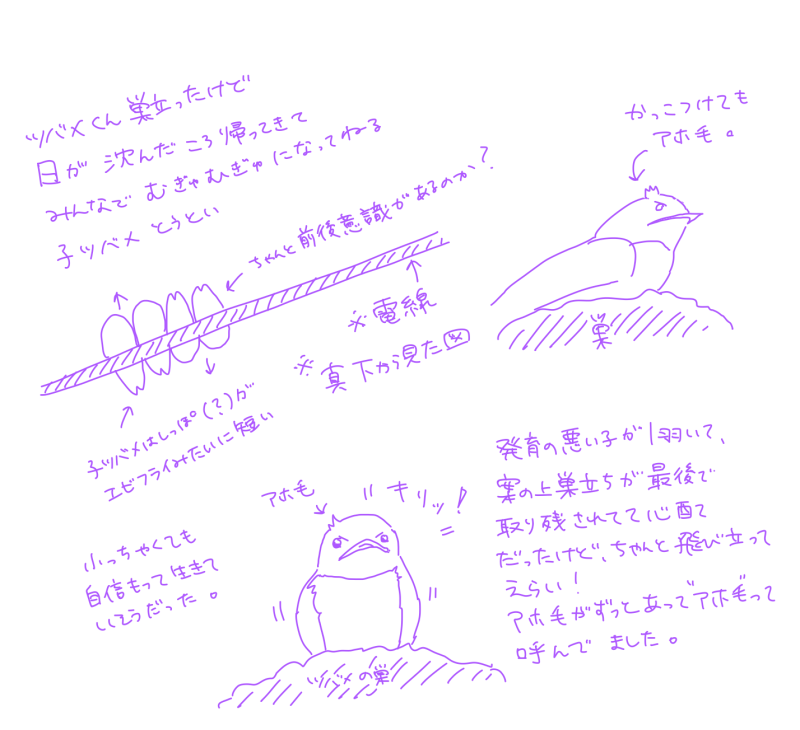 ツバメくん巣立ったけど
日が沈んだころ帰ってきて
みんなでむぎゅむぎゅになってねる
子ツバメとうとい
ちゃんと前後意識があるのか?
※電線
※真下から見た図
子ツバメはしっぽ(?)が
エビフライみたいに短い
かっこつけても
アホ毛。
巣
アホ毛
キリッ!
小っちゃくても
自信もって生きて
いそうだった。
ツバメの巣
発育の悪い子が1羽いて、
案の上巣立ちが最後で
取り残されてて心配
だったけど、ちゃんと飛び立って
えらい!
アホ毛がずっとあって"アホ毛"って
呼んでました。